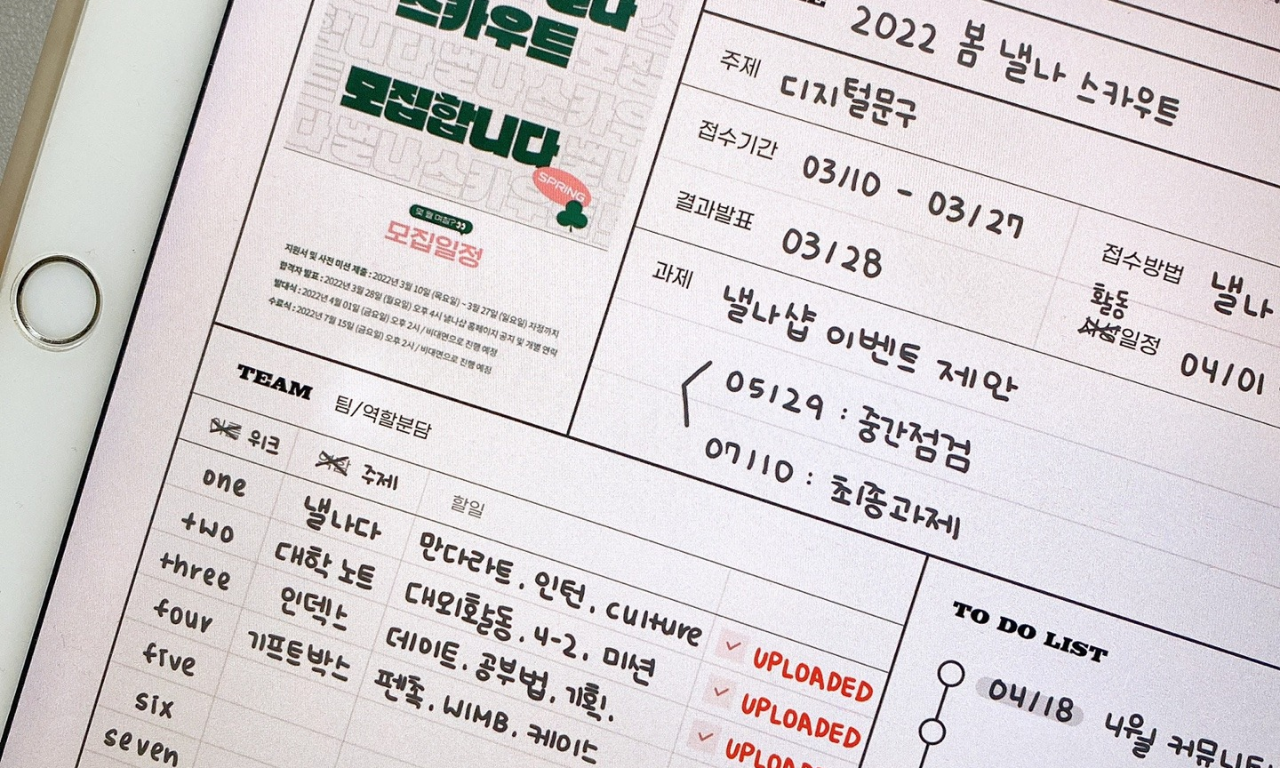 스카우트
모집합니다
SPRING
몇 월 며칠?
모집일정
지원서 및 사전 미션 제출 : 2022년 3월 10일 (목요일) ~ 3월 27일 (일요일) 자정까지
합격자 발표 : 2022년 3월 28일 (월요일) 오후 4시 낼나샵 홈페이지 공지 및 개별 연락
발대식 : 2022년 4월 01일 (금요일) 오후 2시 / 비대면으로 진행 예정
수료식 : 2022년 7월 15일 (금요일) 오후 2시 / 비대면으로 진행 예정
2022 봄 낼나 스카우트
주제 디지털문구
접수기간 03/10 - 03/27
결과발표 03/28
접수방법 낼나
활동
일정 04/01
과제 낼나샵 이벤트 제안
05/29 : 중간점검
07/10 : 최종과제
TEAM 팀/역할분담
위크 주제 할일
one 낼나다 만다라트, 인턴, culture UPLOADED
two 대학 노트 대외활동, 4-2, 미션 UPLOADED
three 인덱스 데이트, 공부법, 기획, UPLOADED
four 기프트박스 펜촉, WIMB, 케이스
five
six
seven
TO DO LIST
04/18 4월 커뮤니티